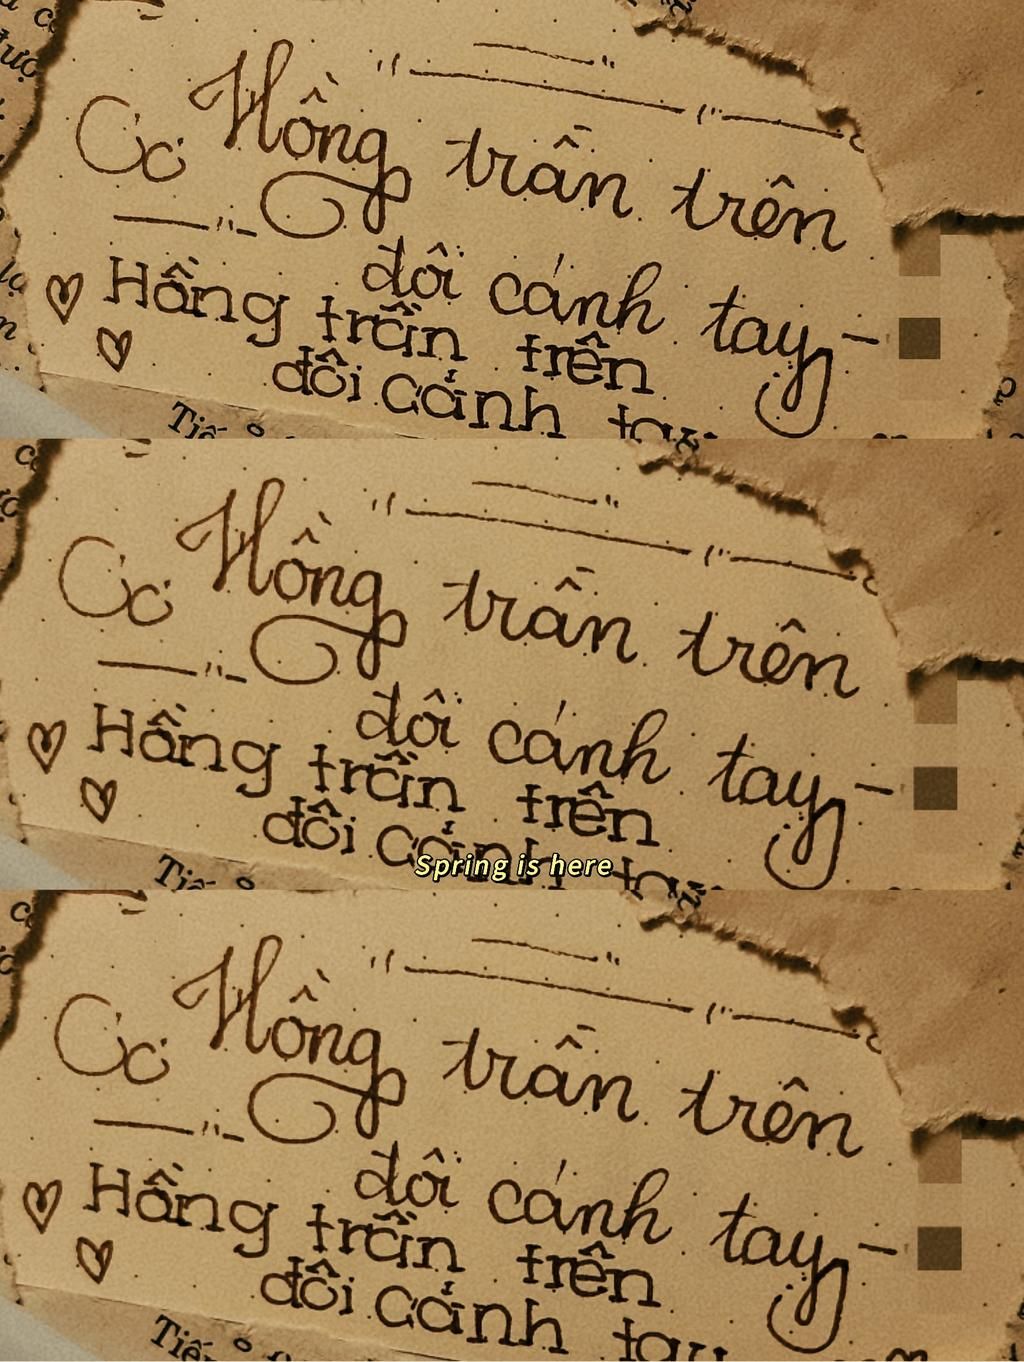 Hồng trần trên
đôi cánh tay
Hồng trần trên
đôi cánh tay
Tiế
Hồng trần trên
đôi cánh tay
Hồng trần trên
đôi cánh tay
Spring is here
Hồng trần trên
đôi cánh tay
Hồng trần trên
đôi cánh tay
Tiế